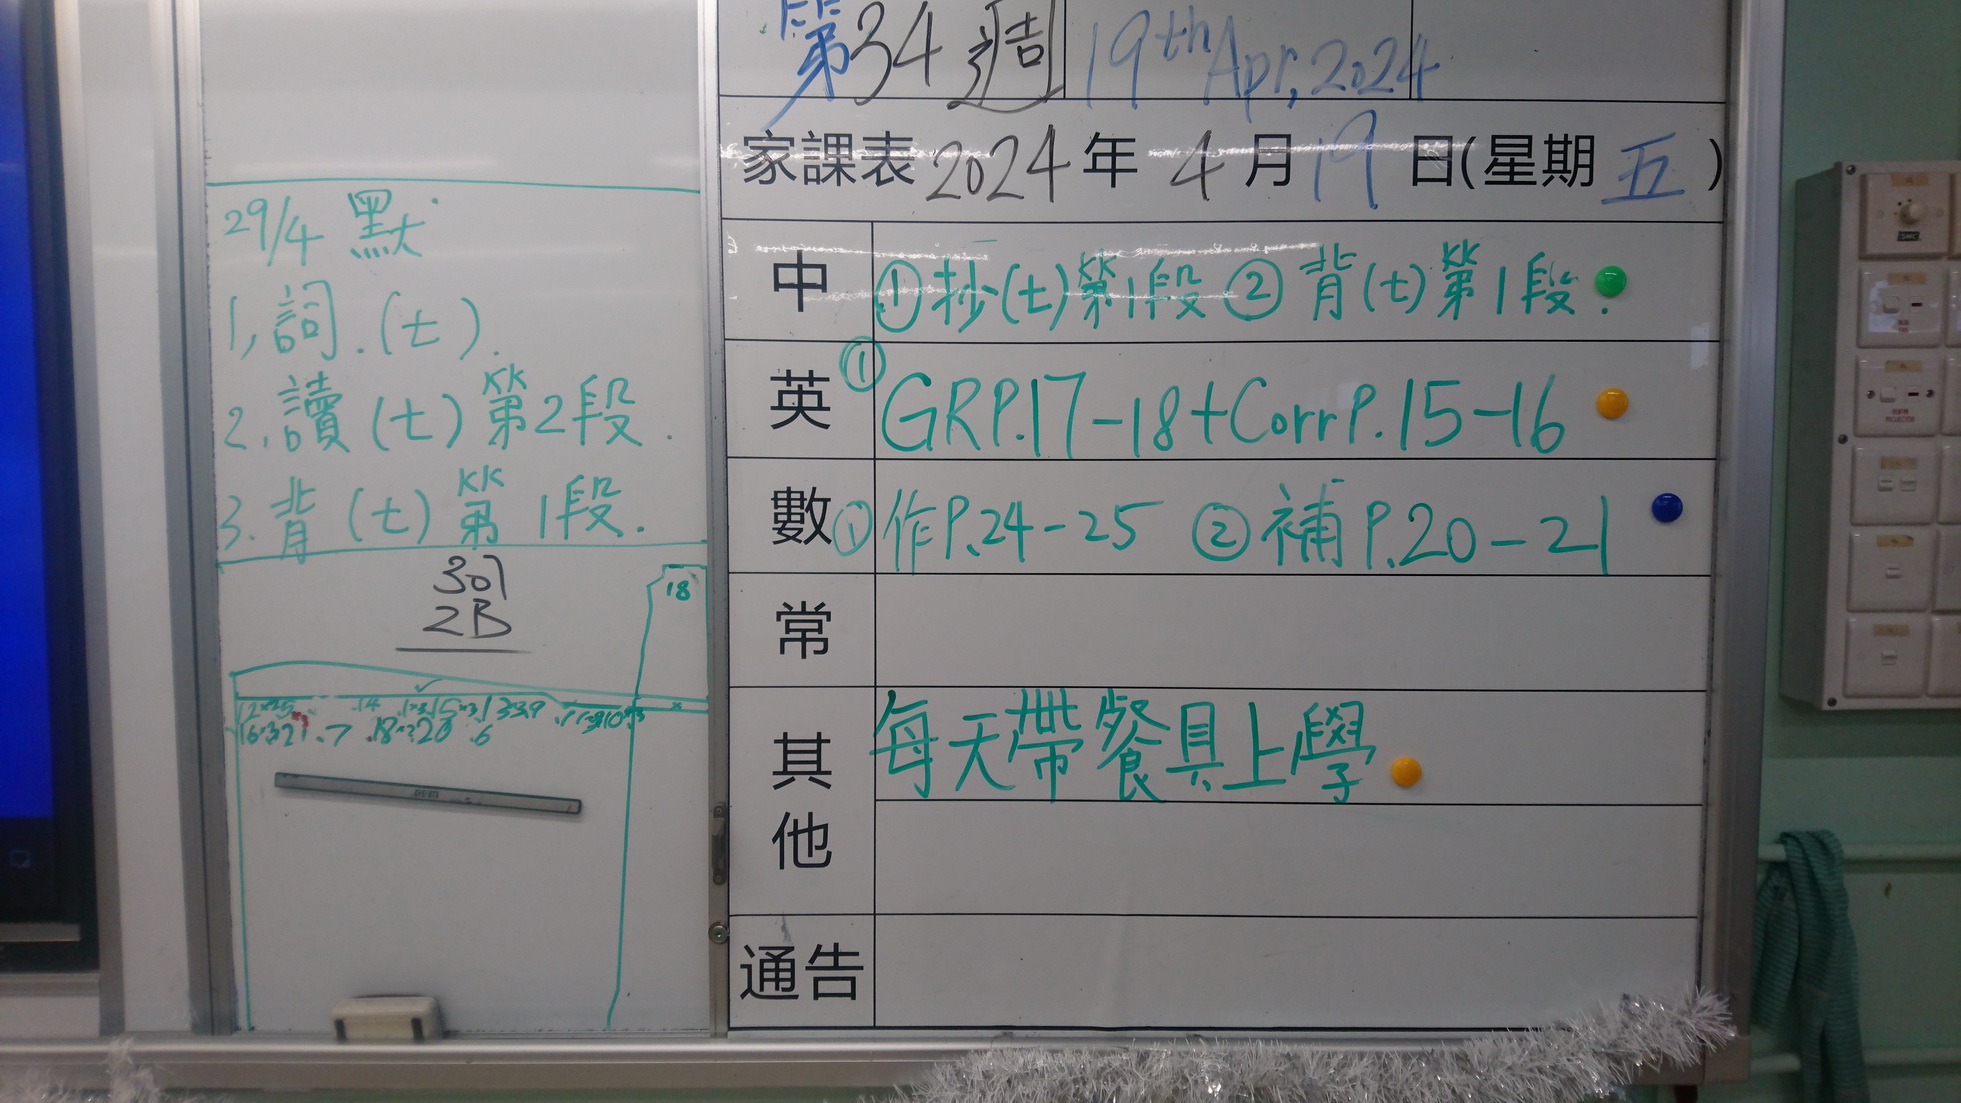 29/4 默
1, 詞.(七).
2. 讀(七)第2段.
3. 背(七)第1段.
301
2B
18
第34週 19th Apr, 2024
家課表 2024年 4月19日(星期五)
中 ①抄(七)第1段 ②背(七)第1段.
英 ① GRP.17-18+CorrP.15-16
數 ① 作P.24-25 ② 補P.20-21
常
其他 每天帶餐具上學
通告